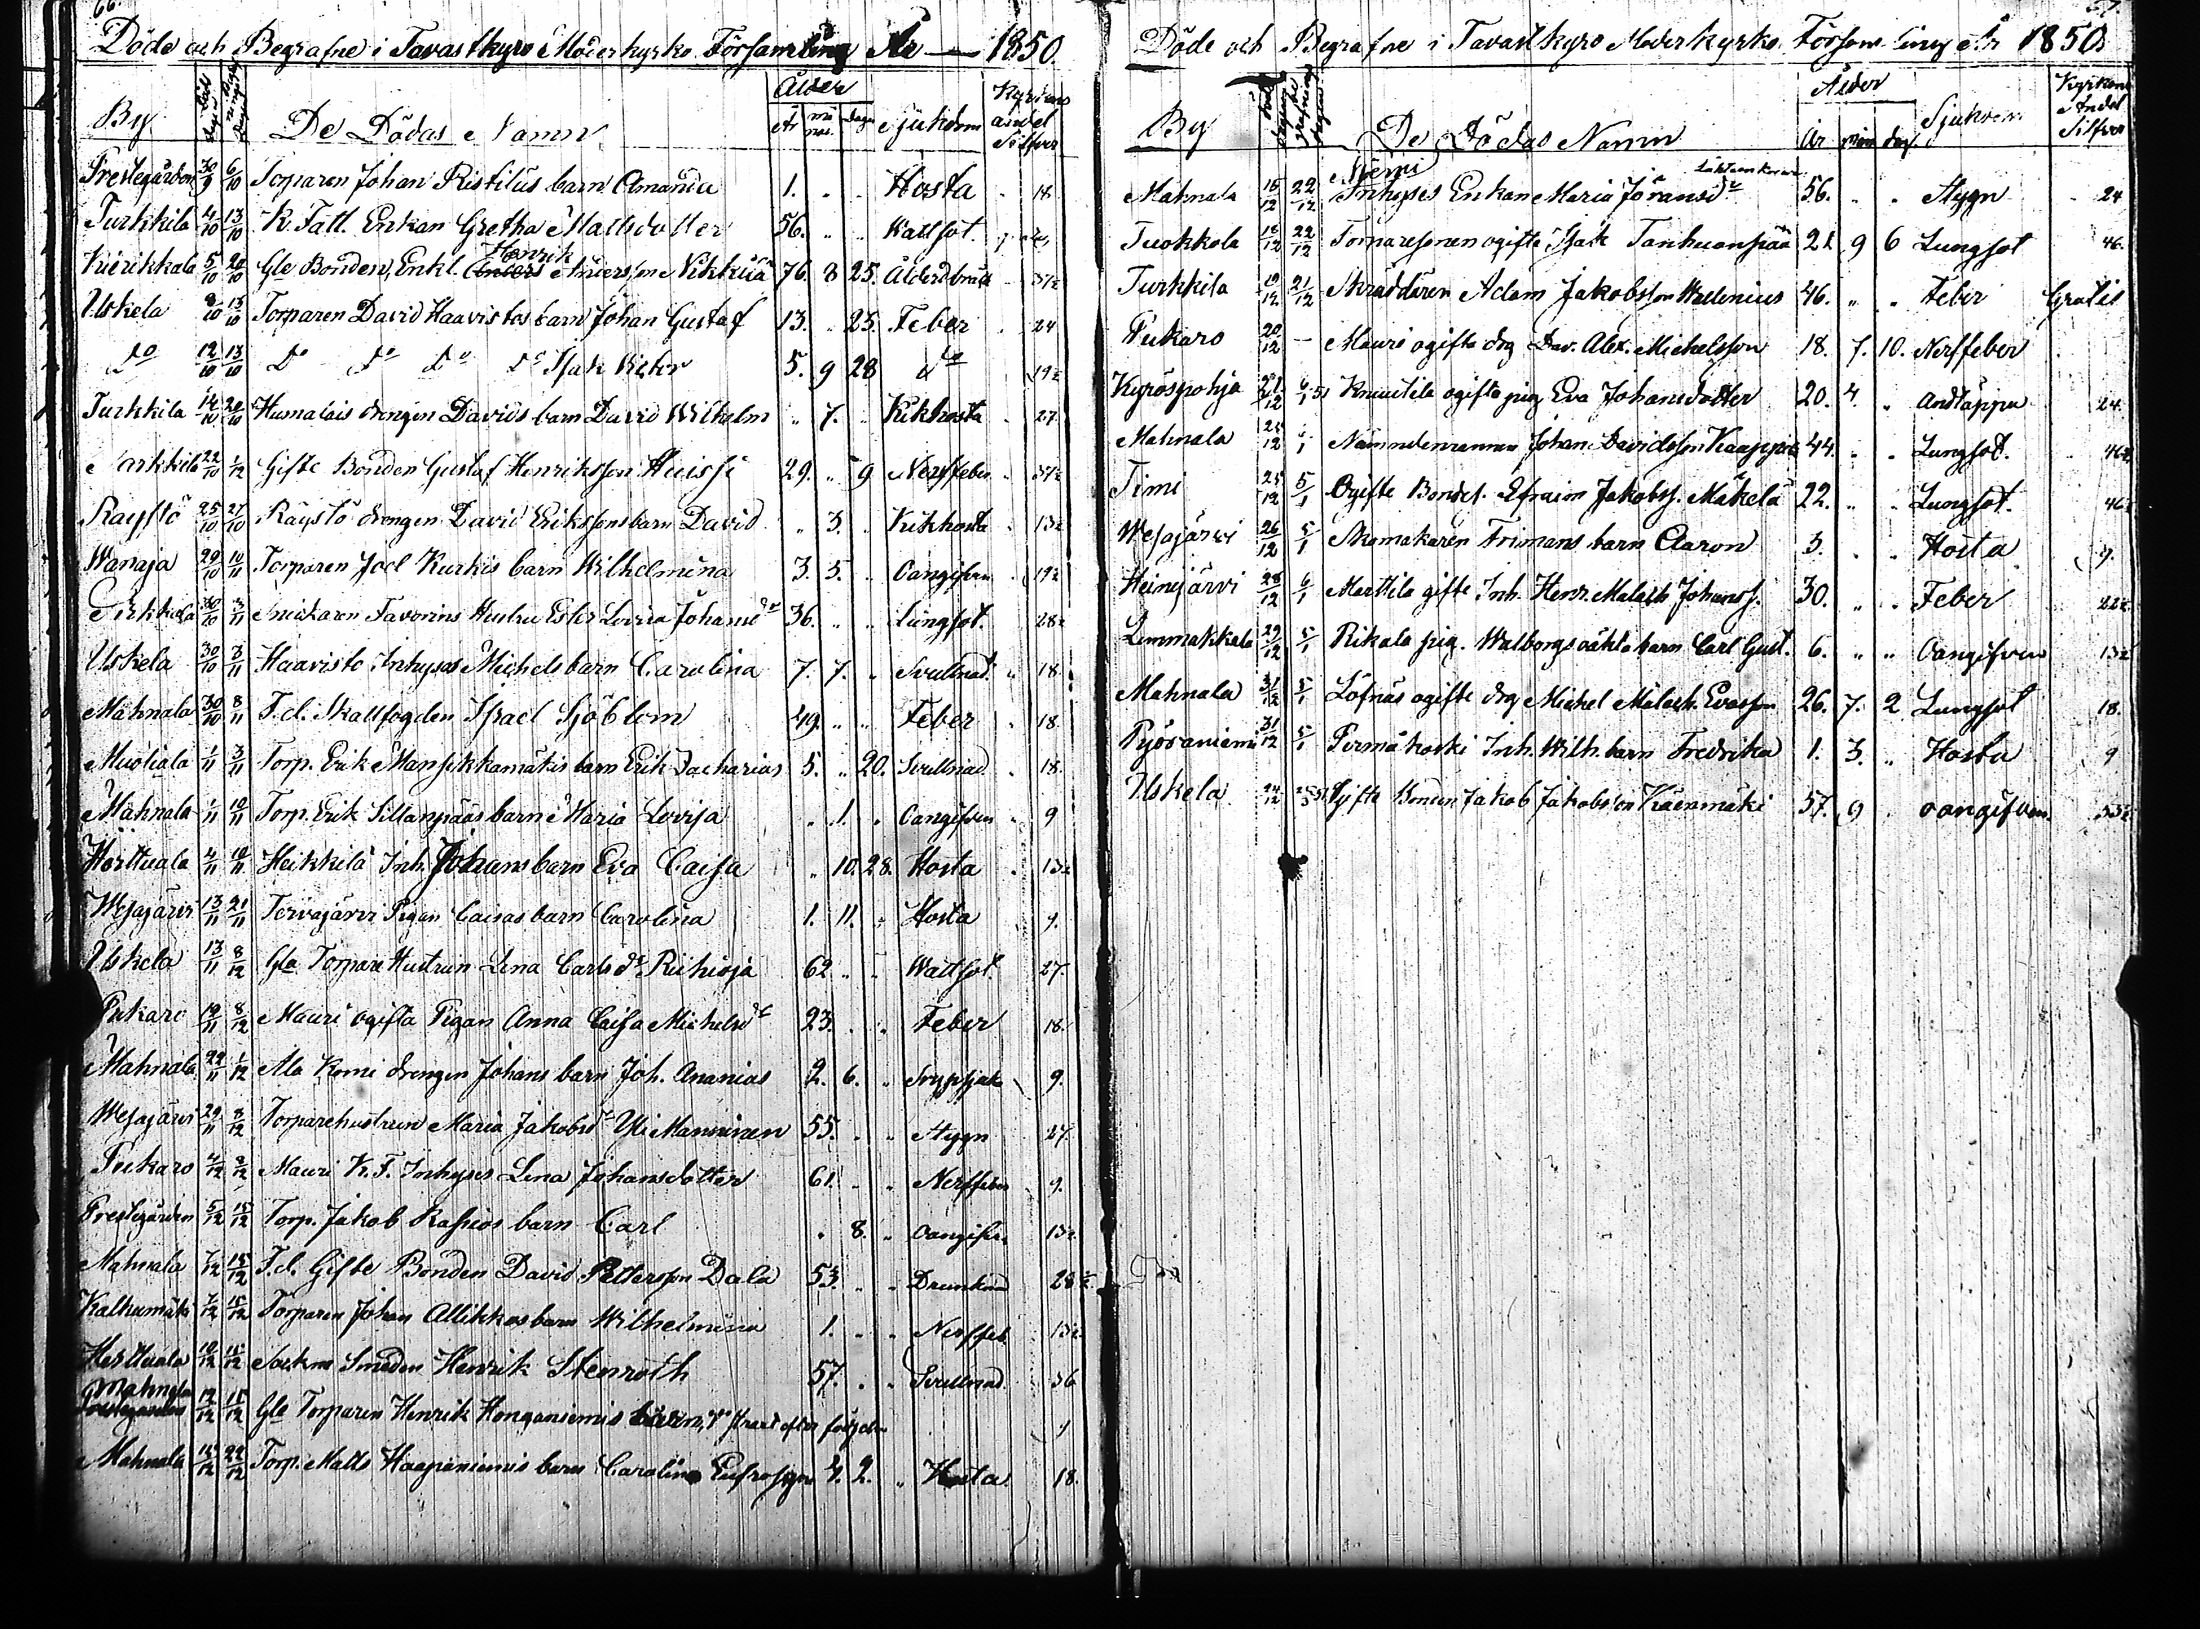 66.
Döde och Begrafne i Tavastkyro Moderkyrko Församling År — 1850.
By Död dagen De Dödas Namn Ålder År må nar. dagar Sjukdom Kyrkans andel Silfver
Prestegården 30/9 6/10 Torparen Johan Ristilus barn Amanda 1. " " Hosta 18
Turkkila 4/10 13/10 K. Fatt. Enkan Gretha Mattsdotter 56. " " Wattsot.
Kierikkala 5/10 20/10 Gle Bonden, Enkl. Henrik Andersson Kikkuiä 76. 8 25. Ålderdbräck 37½
Uskela 9/10 13/10 Torparen David Haavistos barn Johan Gustaf 13. " 25. Feber 24
Do 12/10 13/10 Do Do Do Do Isak Victor 5. 9 28 Do 19½
Turkkila 14/10 20/10 Humalais drengen Davids barn David Wilhelm " 7. " Kikhosta 27
22/10 1/12 Gifte Bonden Gustaf Henriksson Huissi 29. " 9 Nerffeber 37½
Raystö 25/10 27/10 Räystö drengen David Erikssons barn David " 3. " Kikhosta 13½
Wanaja 29/10 10/11 Torparen Joel Kurkis barn Wilhelmina 3. 5. " Oangifven 19½
30/10 3/11 Snickaren Tavorins Hustru Ester Lovisa Johansdr 36. " " Lungsot. 28½
Uskela 30/10 3/11 Haavisto Inhyses Michels barn Carolina 7. 7. " Svullnad. 18
Mahnala 30/10 8/11 F.d. Skallfogden Israel Sjöblom 49. " " Feber 18
Muotiala 1/11 3/11 Torp. Erik Mansikkamäkis barn Erik Zacharias 5. " 20. Svullnad. 18.
Mahnala 1/11 10/11 Torp. Erik Sillanpääs barn Maria Lovisa " 1. " Oangifven 9
Herttuala 4/11 10/11 Heikkilä Inh. Johans barn Eva Caisa " 10. 28. Hosta 13½
Wesajärvi 13/11 21/11 Tervajärvi Pigan Caisas barn Carolina 1. 11. " Hosta 9.
Uskela 13/11 8/12 Gla Torpare Hustrun Lena Carlsdr Riihioja 62 " " Wattsot. 27.
Pukaro 19/11 8/12 Mauri ogifta Pigan Anna Caisa Michelsdr 23. " " Feber 18.
Mahnala 22/11 1/12 Ala Komi drengen Johans barn Joh. Ananias 2. 6. " Strypsjuk 9.
Wesajärvi 29/11 8/12 Torparehustrun Maria Jakobsdr Yli Manninen 55. " " Stygn 27.
Pukaro 4/12 8/12 Mauri K. F. Inhyses Lena Johansdotter 61. " " Nerffeber 9.
Prestegården 5/12 15/12 Torp. Jakob Rahios barn Carl " 8. " Oangifven 13½
Mahnala 7/12 15/12 F.d. Gifte Bonden David Pettersson Dala 53. " " Drunknad 28½
Kalkunmäki 7/12 15/12 Torparen Johan Allikkos barn Wilhelmina 1. " " Nerffeb. 13½
Herttuala 10/12 15/12 Sockne Smeden Henrik Stenroth 57. " " Svullnad. 36
Mahnala 12/12 15/12 Gle Torparen Henrik Honganiemis
Mahnala 15/12 22/12 Torp. Matts Haapaniemis barn Carolina Eufrosyne 4. 2. " Hosta 18.
67.
Döde och Begrafne i Tavastkyro Moderkyrko Församling År 1850.
By De Dödas Namn Ålder År mån dag. Sjukdom Kyrkans Andel Silfver
Mahnala 15/12 22/12 Niemi Inhyses Enkan Maria Göransdr 56. " " Stygn 24
Tuokkola 18/12 22/12 Torparesonen ogifte Isak Tanhuanpää 21 9 6 Lungsot 46.
Turkkila 19/12 21/12 Skräddaren Adam Jakobsson Wallenius 46. " " Feber Gratis
Pukaro 20/12 — Mauri ogifte drg Dav. Alex. Michelsson 18. 7. 10. Nerffeber
Kyröspohja 21/12 6/1 51 Knuutila ogifta pig Eva Johansdotter 20. 4. " Andtäppa 24.
Mahnala 25/12 6/1 Nämndemannen Johan Davidsson Kaappola 44. " " Lungsot. 46½
Timi 25/12 5/1 Ogifte Bondes. Efraim Jakobss. Mäkelä 22. " " Lungsot. 46½
Wesajärvi 26/12 5/1 Skomakaren Frimans barn Aaron 3. " " Hosta 9.
Heinijärvi 28/12 6/1 Marttila gifte Inh. Henr. Malach Johanss. 30. " " Feber 22½
Lemmakkala 29/12 5/1 Rikala pig. Walborgs oäkta barn Carl Gust. 6. " " Oangifven 13½
Mahnala 31/12 5/1 Löfnäs ogifte drg Michel Malach. Evasson 26. 7. 2 Lungsot 18.
Pyöräniemi 31/12 5/1 Permäkoski Inh. Wilh. barn Fredrika 1. 3. " Hosta 9
Uskela 24/12 Gifte Bonden Jakob Jakobsson Käenmäki 57. 9 " oangifven.